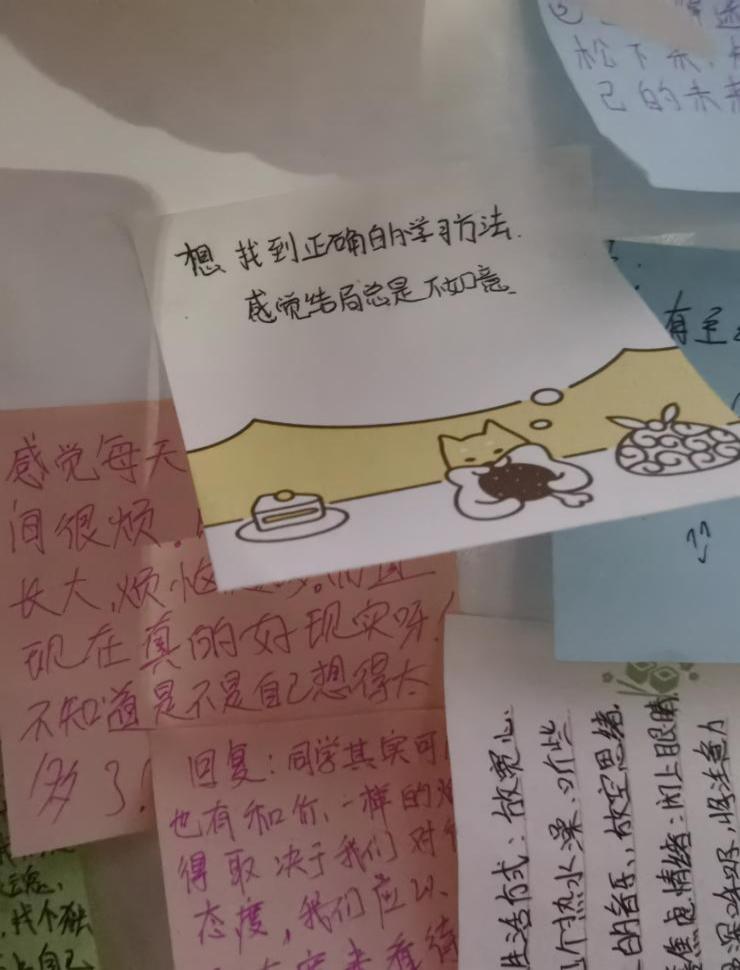 松下来,
己的未来
想找到正确的学习方法.
感觉结局总是不如意.
有至
感觉每天
间很烦。
长大,烦恼
现在真的好现实呀!
不知道是不是自己想得太
多了!
回复:同学其实可
也有和你一样的
得取决于我们对
态度,我们应以
来看待
生活方式:放宽心.
个热水澡、听些
的音乐、放空思绪.
焦虑情绪:闭上眼睛
深呼吸,将注意力
找个
自己